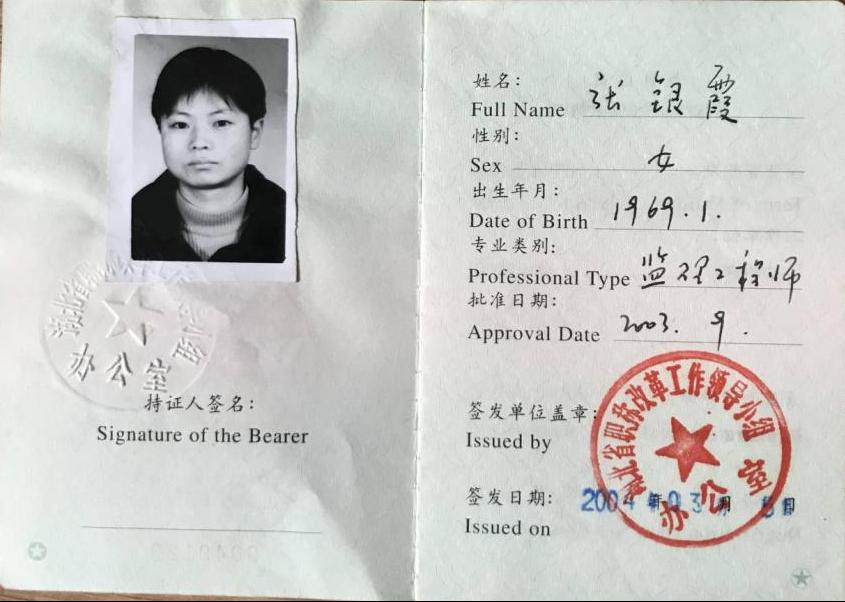 持证人签名：
Signature of the Bearer
办公室
姓名：
Full Name 张银霞
性别：
Sex 女
出生年月：
Date of Birth 1969.1.
专业类别：
Professional Type 监理工程师
批准日期：
Approval Date 2003.9.
签发单位盖章：
Issued by
湖北省职称改革工作领导小组
办公室
签发日期：
2004年03月
Issued on